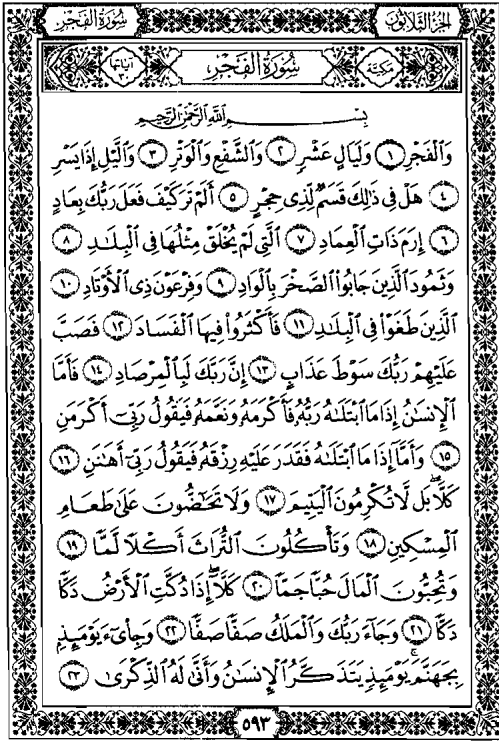 سُورَةُ الفَجْرِ
الجُزْءُ الثَّلَاثُونَ
مَكِّيَّة
سُورَةُ الفَجْرِ
آيَاتُهَا ٣٠
بِسْمِ اللَّهِ الرَّحْمَٰنِ الرَّحِيمِ
وَالْفَجْرِ ١ وَلَيَالٍ عَشْرٍ ٢ وَالشَّفْعِ وَالْوَتْرِ ٣ وَالَّيْلِ إِذَا يَسْرِ
٤ هَلْ فِي ذَٰلِكَ قَسَمٌ لِّذِي حِجْرٍ ٥ أَلَمْ تَرَ كَيْفَ فَعَلَ رَبُّكَ بِعَادٍ
٦ إِرَمَ ذَاتِ الْعِمَادِ ٧ الَّتِي لَمْ يُخْلَقْ مِثْلُهَا فِي الْبِلَٰدِ ٨
وَثَمُودَ الَّذِينَ جَابُوا الصَّخْرَ بِالْوَادِ ٩ وَفِرْعَوْنَ ذِي الْأَوْتَادِ ١٠
الَّذِينَ طَغَوْا فِي الْبِلَٰدِ ١١ فَأَكْثَرُوا فِيهَا الْفَسَادَ ١٢ فَصَبَّ
عَلَيْهِمْ رَبُّكَ سَوْطَ عَذَابٍ ١٣ إِنَّ رَبَّكَ لَبِالْمِرْصَادِ ١٤ فَأَمَّا
الْإِنسَٰنُ إِذَا مَا ابْتَلَىٰهُ رَبُّهُ فَأَكْرَمَهُ وَنَعَّمَهُ فَيَقُولُ رَبِّي أَكْرَمَنِ
١٥ وَأَمَّا إِذَا مَا ابْتَلَىٰهُ فَقَدَرَ عَلَيْهِ رِزْقَهُ فَيَقُولُ رَبِّي أَهَٰنَنِ ١٦
كَلَّا ۖ بَل لَّا تُكْرِمُونَ الْيَتِيمَ ١٧ وَلَا تَحَٰضُّونَ عَلَىٰ طَعَامِ
الْمِسْكِينِ ١٨ وَتَأْكُلُونَ التُّرَاثَ أَكْلًا لَّمًّا ١٩
وَتُحِبُّونَ الْمَالَ حُبًّا جَمًّا ٢٠ كَلَّا ۖ إِذَا دُكَّتِ الْأَرْضُ دَكًّا
دَكًّا ٢١ وَجَاءَ رَبُّكَ وَالْمَلَكُ صَفًّا صَفًّا ٢٢ وَجِايءَ يَوْمَئِذٍ
بِجَهَنَّمَ ۚ يَوْمَئِذٍ يَتَذَكَّرُ الْإِنسَٰنُ وَأَنَّىٰ لَهُ الذِّكْرَىٰ ٢٣
٥٩٣